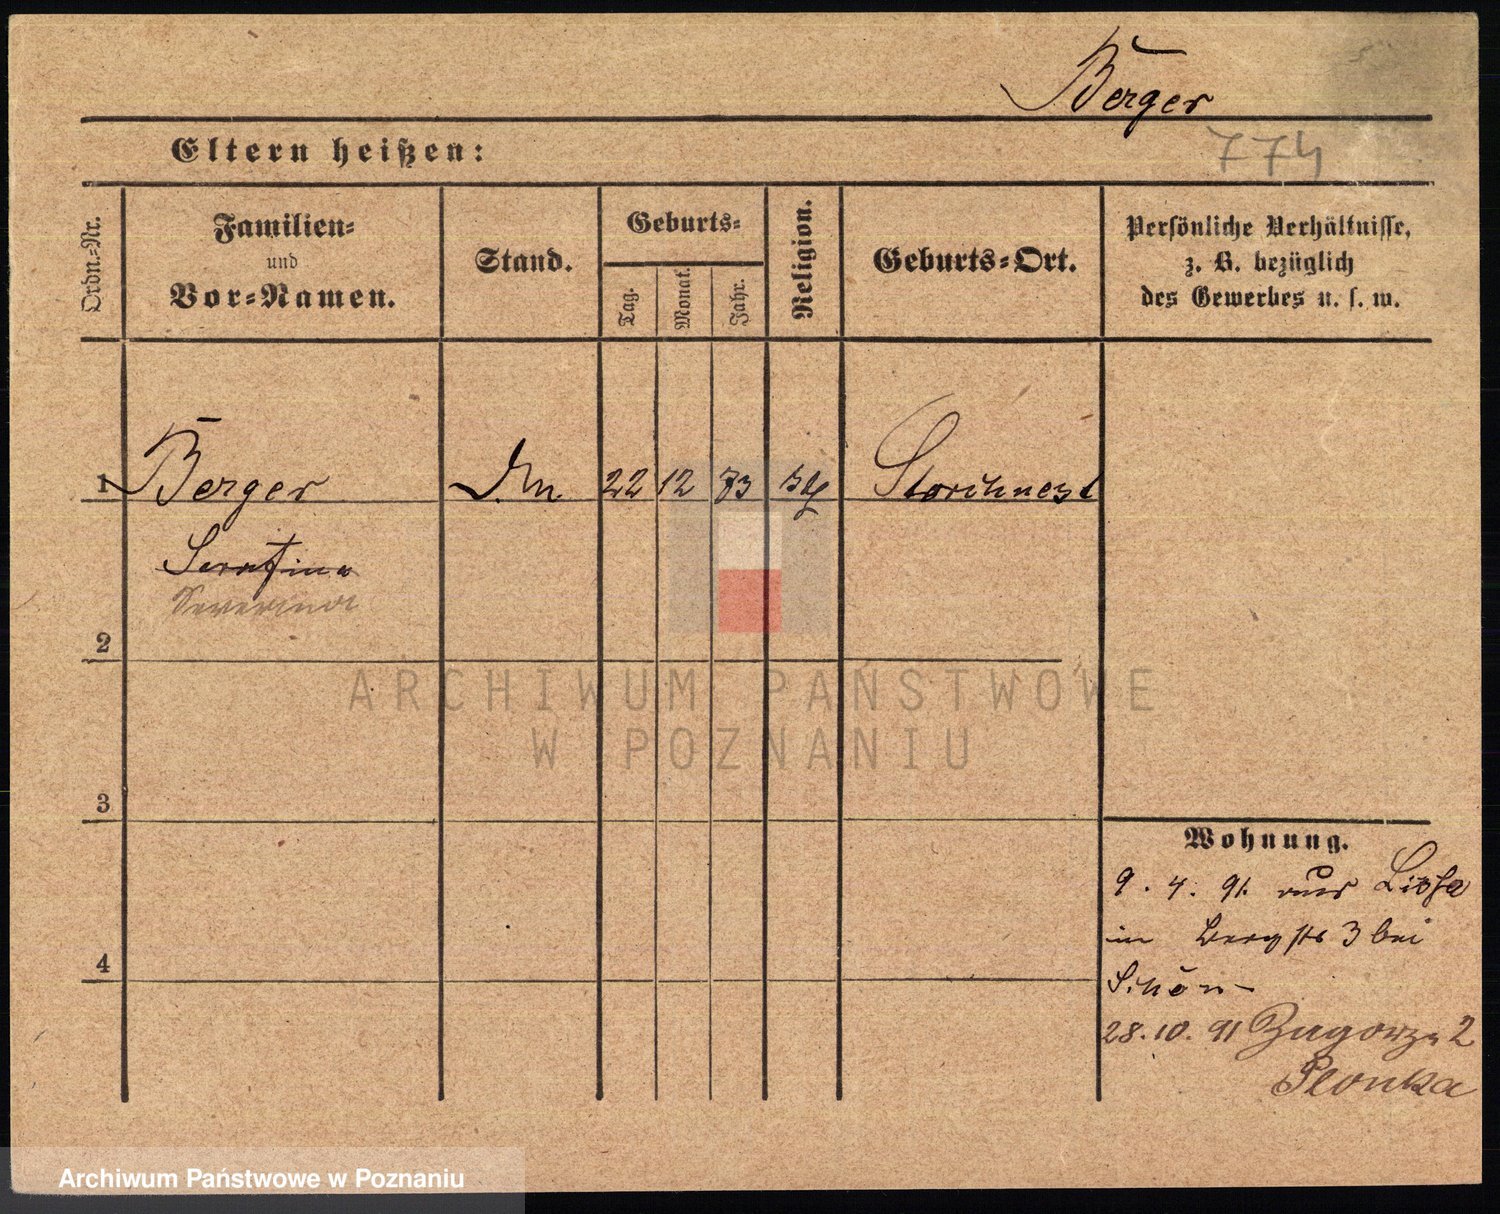 Berger
774
Eltern heißen:
Ordn.-Nr.
Familien-
und
Vor-Namen.
Stand.
Geburts-
Tag.
Monat.
Jahr.
Religion.
Geburts-Ort.
Persönliche Verhältnisse,
z. B. bezüglich
des Gewerbes u. s. w.
1 Berger 22 12 73 Storchnest
Serafina
Severina
2
ARCHIWUM PAŃSTWOWE
W POZNANIU
3
Wohnung.
9. 4. 91. aus Lissa
in Bergstr 3 bei
Schön
4
28. 10. 91 Zagorze 2
Plonka
Archiwum Państwowe w Poznaniu